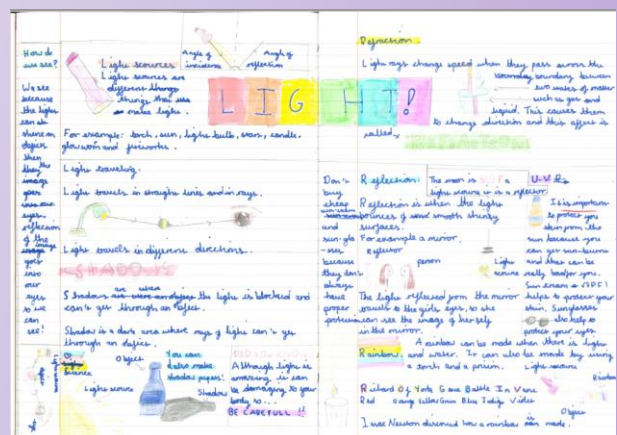 How do
we see?
We see
because
the light
can
shine on
object
then
the
image
goes
into our
eyes.
reflection
of the
image
goes
into
our
eyes
so we
can
see!
Light sources
Light sources are
different things
things that
make light.
For example: torch, sun, light bulb, stars, candle,
glowworm and fireworks.
Angle of
incidence
Angle of
reflection
LIGHT!
Light traveling.
Light travels in straight lines and in rays.
Light travels in different directions.
SHADOWS
Shadows are where the light is blocked and
can't go through an object.
Shadow is a dark area where rays of light can't go
through an object.
Object
Light source
Shadow
You can
also make
shadow puppets!
Did you know?
Although light is
amazing it can
be damaging to your
body so...
BE CAREFULL!!
Refraction.
Light rays change speed when they pass across the
boundary between
two of matter
such as gas and
liquid. This causes them
to change direction and this effect is
called
REFRACTION
Don't
buy
cheap
and
sun-gla
-sses
because
they don't
always
have
proper
protection
Reflection:
The moon is NOT a
light source it is a reflector.
Reflection is when the light
bounces of smooth shiny
surfaces.
For example a mirror.
Reflector
person
Light
source
The light reflected from the mirror
travels to the girls eyes, so she
can see the image of herself
in the mirror.
U.V.R
It is important
to protect your
skin from the
sun because you
can get sun-burn
and that can be
really bad for you.
Sun cream (SPF)
helps to protect your
skin. Sunglasses
also help to
protect your eyes
Rainbow
A rainbow can be made when there is light
and water. It can also be made by using
a torch and a prism.
Light source
Rainbow
Richard Of York Gave Battle In Vane
Red Orange Yellow Green Blue Indigo Violet
Object
Isaac Newton discovered how a rainbow is made.